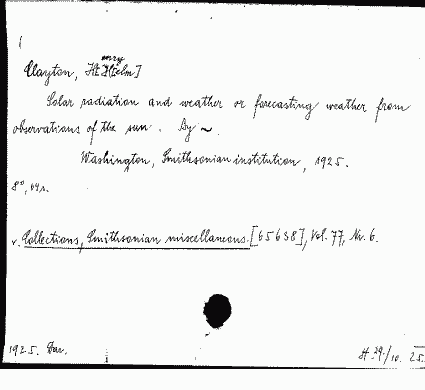 Clayton, H[enry Helm]
Solar radiation and weather or forecasting weather from
observations of the sun. By ~.
Washington, Smithsonian institution, 1925.
8°, 64 s.
v. Collections, Smithsonian miscellaneous. [65638], Vol. 77, Nr. 6.
1925. 29/10. 25.